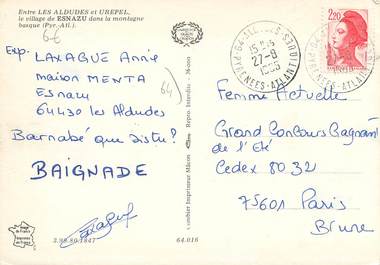 Entre LES ALDUDES et UREPEL,
le village de ESNAZU dans la montagne
basque (Pyr.-Atl.)
6€
Exp. LAXAGUE Annie
maison MENTA
Esnazu
64430 les Aldudes
64
Barnabé que dis-tu?
BAIGNADE
2.99.80.1847
64.016
Combier Imprimeur Mâcon
Repro. Interdite
15H45
27-8
PYRENEES-ATLANTIQUES
2,20
Femme Actuelle
Grand Concours Gagnant
de l'Eté
Cedex 8032
75601 Paris
Brune